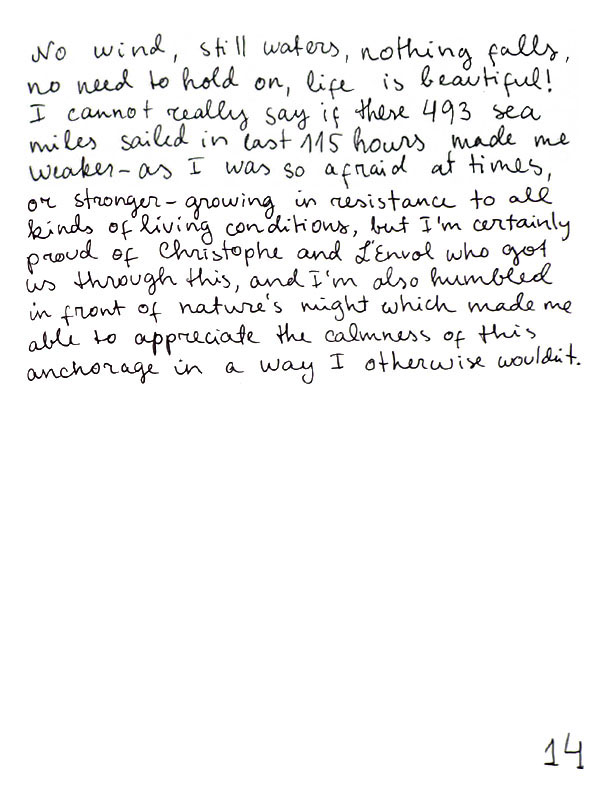 No wind, still waters, nothing falls,
no need to hold on, life is beautiful!
I cannot really say if these 493 sea
miles sailed in last 115 hours made me
weaker - as I was so afraid at times,
or stronger - growing in resistance to all
kinds of living conditions, but I'm certainly
proud of Christophe and L'Envol who got
us through this, and I'm also humbled
in front of nature's might which made me
able to appreciate the calmness of this
anchorage in a way I otherwise wouldn't.
14